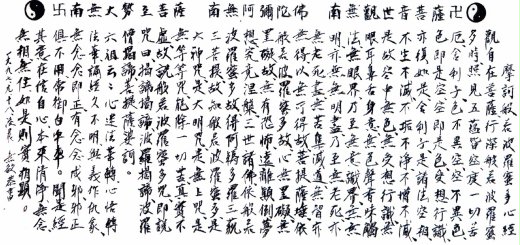 南無大勢至菩薩 南無阿彌陀佛 南無觀世音菩薩
般若波羅蜜多心經
觀自在菩薩行深般若波羅蜜
多時照見五蘊皆空度一切苦
厄舍利子色不異空空不異色
色即是空空即是色受想行識
亦復如是舍利子是諸法空相
不生不滅不垢不淨不增不減
是故空中無色無受想行識無
眼耳鼻舌身意無色聲香味觸
法無眼界乃至無意識界無無
明亦無無明盡乃至無老死亦
無老死盡無苦集滅道無智亦
無得以無所得故菩提薩埵依
般若波羅蜜多故心無罣礙無
罣礙故無有恐怖遠離顛倒夢
想究竟涅槃三世諸佛依般若
波羅蜜多故得阿耨多羅三藐
三菩提故知般若波羅蜜多是
大神咒是大明咒是無上咒是
無等等咒能除一切苦真實不
虛故說般若波羅蜜多咒即說
咒曰揭諦揭諦波羅揭諦波羅
僧揭諦菩提薩婆訶
六祖云心迷法華轉心悟轉
法華誦經久不明與義作仇家
無念念即正有念念成邪
俱不 白牛車 聞是經
其意在信自心本來清淨無念
無相無住如是則實相觀
一九九九年